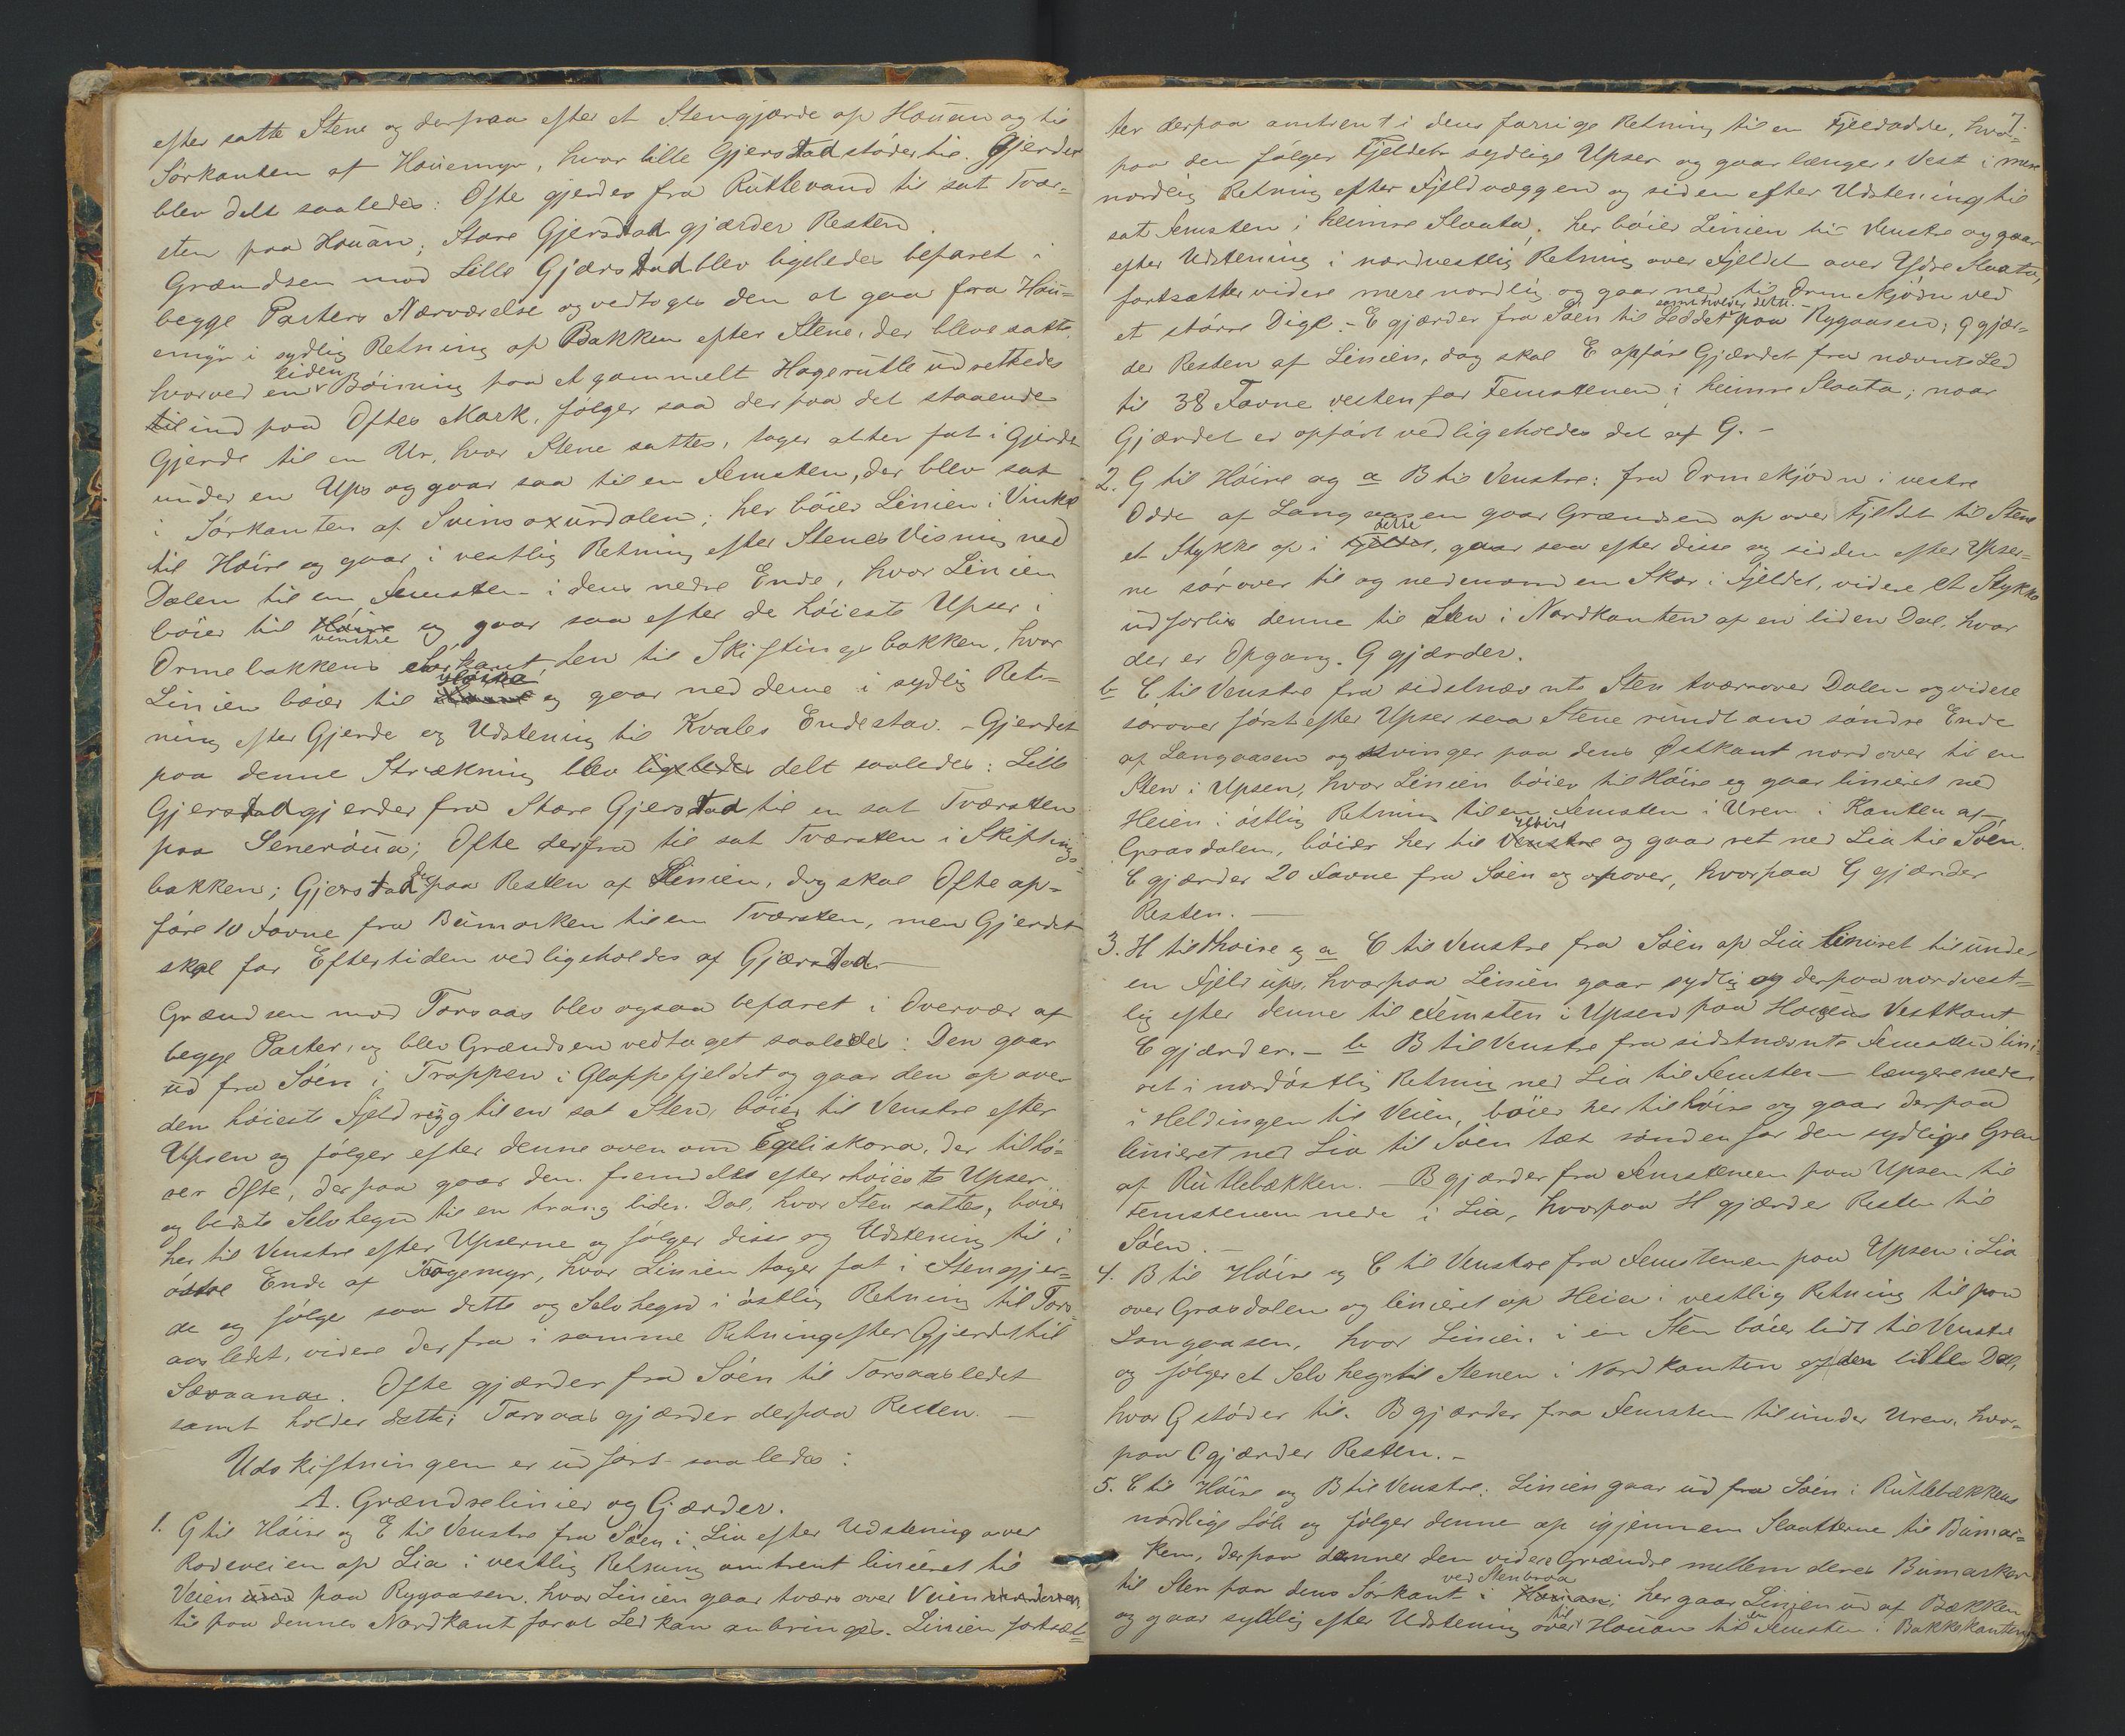 efter satte Stene og derpaa efter et Stengjærde op Houan og til
Sørkanten af Houemyr, hvor lille Gjerstad støder til. Gjerdet
blev delt saaledes: Ofte gjerdes fra Rutlevand til sat Tvær-
sten paa Houan; Store Gjerstad gjærder Resten.
Grændsen mod Lille Gjærstad blev ligeledes befaret i
begge Parters Nærværelse og vedtoges den at gaa fra Hou-
emyr i sydlig Retning op Bakken efter Stene, der bleve satte,
hvorved en liden Bøining paa et gammelt Hagerutle udrettedes
til ind paa Oftes Mark, følger saa derpaa det staaende
Gjerde til en Ur, hvor Stene sattes, tager atter fat i Gjerde
under en Ups og gaar saa til en Femsten, der blev sat
i Sørkanten af Svinsoxurdalen; her bøier Linien i Vinkel
til Høire og gaar i vestlig Retning efter Stenes Visning ned
Dalen til en Femsten i dens nedre Ende, hvor Linien
bøier til Høire venstre og gaar saa efter de høieste Upser i
Ormebakkens Sørkant hen til Skiftingsbakken, hvor
Linien bøier til Høire og gaar ned denne i sydlig Ret-
ning efter Gjerde og Udstening til Kvales Endestav. - Gjerdet
paa denne Strækning blev ligeledes delt saaledes: Lille
Gjerstad gjerder fra Store Gjerstad til en sat Tværsten
paa Senerøua; Ofte derfra til sat Tværsten i Skiftings-
bakken; Gjerstad paa Resten af Linien, dog skal Ofte op-
føre 10 Favne fra Bumarken til en Tværsten, men Gjerdet
skal for Eftertiden vedligeholdes af Gjærstad. —
Grændsen mod Torsaas blev ogsaa befaret i Overvær af
begge Parter, og blev Grændsen vedtaget saaledes: Den gaar
ud fra Søen i Trappen i Gloppefjeldet og gaar den op over
den høieste Fjeldryg til en sat Sten, bøier til Venstre efter
Upsen og følger efter denne oven om Egeliskora, der tilhø-
rer Ofte, derpaa gaar den fremdeles efter høieste Upser
og bedste Selvhegn til en trang liden Dal, hvor Sten sattes, bøier
her til Venstre efter Upserne og følger disse og Udstening til i
østre Ende af Togemyr, hvor Linien tager fat i Stengjer-
de og følge saa dette og Selvhegn i østlig Retning til Tors-
aasledet, videre derfra i samme Retning efter Gjerdet til
Sævaanae. Ofte gjærder fra Søen til Torsaasledet
samt holder dette; Torsaas gjærder derpaa Resten. —
Udskiftningen er udført saaledes:
A. Grændselinier og Gjærder.
1. G til Høire og E til Venstre fra Søen i Lia efter Udstening over
Rodeveien op Lia i vestlig Retning omtrent linieret til
Veien paa Rygaasen, hvor Linien gaar tværs over Veien
til paa dennes Nordkant forat Led kan anbringes. Linien fortsæt-
7.
ter derpaa omtrent i dens forrige Retning til en Fjeldodde, hvor-
paa den følger Fjeldets sydlige Upser og gaar længere Vest i mere
nordlig Retning efter Fjeldvæggen og siden efter Udstening til
sat Femsten i heimre Slaata; her bøier Linien til Venstre og gaar
efter Udstening i nordvestlig Retning over Fjeldet over Ydre Slaata,
fortsætter videre mere nordlig og gaar ned til Ormekjødn ved
et større Dige. - E gjærder fra Søen til Leddet paa Rygaasen, samt holder dette. G gjær-
der Resten af Linien, dog skal E opføre Gjærdet fra nævnte Led
til 38 Favne vestenfor Femstenen i heimre Slaata; naar
Gjærdet er opført vedligeholdes det af G. -
2. G til Høire og a B til Venstre: fra Ormekjødn i vestre
Odde af Langaasen gaar Grændsen op over Fjeldet til Stene
et Stykke op i Fjeldet dette, gaar saa efter disse og siden efter Upser-
ne sørover til og nedenom en Skor i Fjeldet, videre et Stykke
udforbi denne til Sten i Nordkanten af en liden Dal, hvor
der er Opgang. G gjærder.
b C til Venstre fra sidstnævnte Sten tværsover Dalen og videre
sørover først efter Upser saa Stene rundt om søndre Ende
af Langaasen og svinger paa dens Østkant nordover til en
Sten i Upsen, hvor Linien bøier til Høire og gaar linieret ned
Heien i østlig Retning til en Femsten i Uren i Kanten af
Grasdalen, bøier her til Venstre Høire og gaar ret ned Lia til Søen.
C gjærder 20 Favne fra Søen og opover, hvorpaa G gjærder
Resten. —
3. H til Høire og a C til Venstre fra Søen op Lia linieret til under
en Fjeldups, hvorpaa Linien gaar sydlig og derpaa nordvest-
lig efter denne til Femsten i Upsen paa Houens Vestkant
C gjærder. - b B til Venstre fra sidstnævnte Femsten lini-
ret i nordøstlig Retning ned Lia til Femsten — længere nede
i Heldingen til Veien, bøier her til høire og gaar derpaa
linieret ned Lia til Søen tæt søndenfor den sydlige Gren
af Rutlebækken. — B gjærder fra Femstenen paa Upsen til
Femstenen nede i Lia, hvorpaa H gjærder Resten til
Søen. —
4. B til Høire og C til Venstre fra Femstenen paa Upsen i Lia
over Grasdalen og linieret op Heia i vestlig Retning til paa
Langaasen, hvor Linien i en Sten bøier lidt til Venstre
og følger et Selvhegn til Stenen i Nordkanten af den lille Dal,
hvor G støder til. B gjærder fra Femsten til under Uren, hvor-
paa C gjærder Resten. -
5. C til Høire og B til Venstre: Linien gaar ud fra Søen i Rutlebækkens
nordlige Løb og følger denne op igjennem Slaatterne til Bumar-
ken, derpaa danner den videre Grændse mellem deres Bumarker
til Sten paa dens Sørkant i Houan ved Stenbroa; her gaar Linien ud af Bækken
og gaar sydlig efter Udstening over til Houan til en Femsten i Bakkekanten